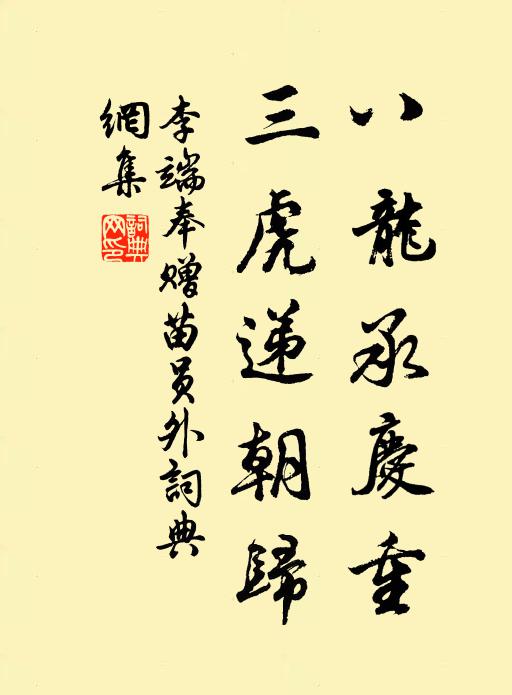 八龍承慶重
三虎递朝歸
李端奉赠苗員外詞典
網集
詞典
网印